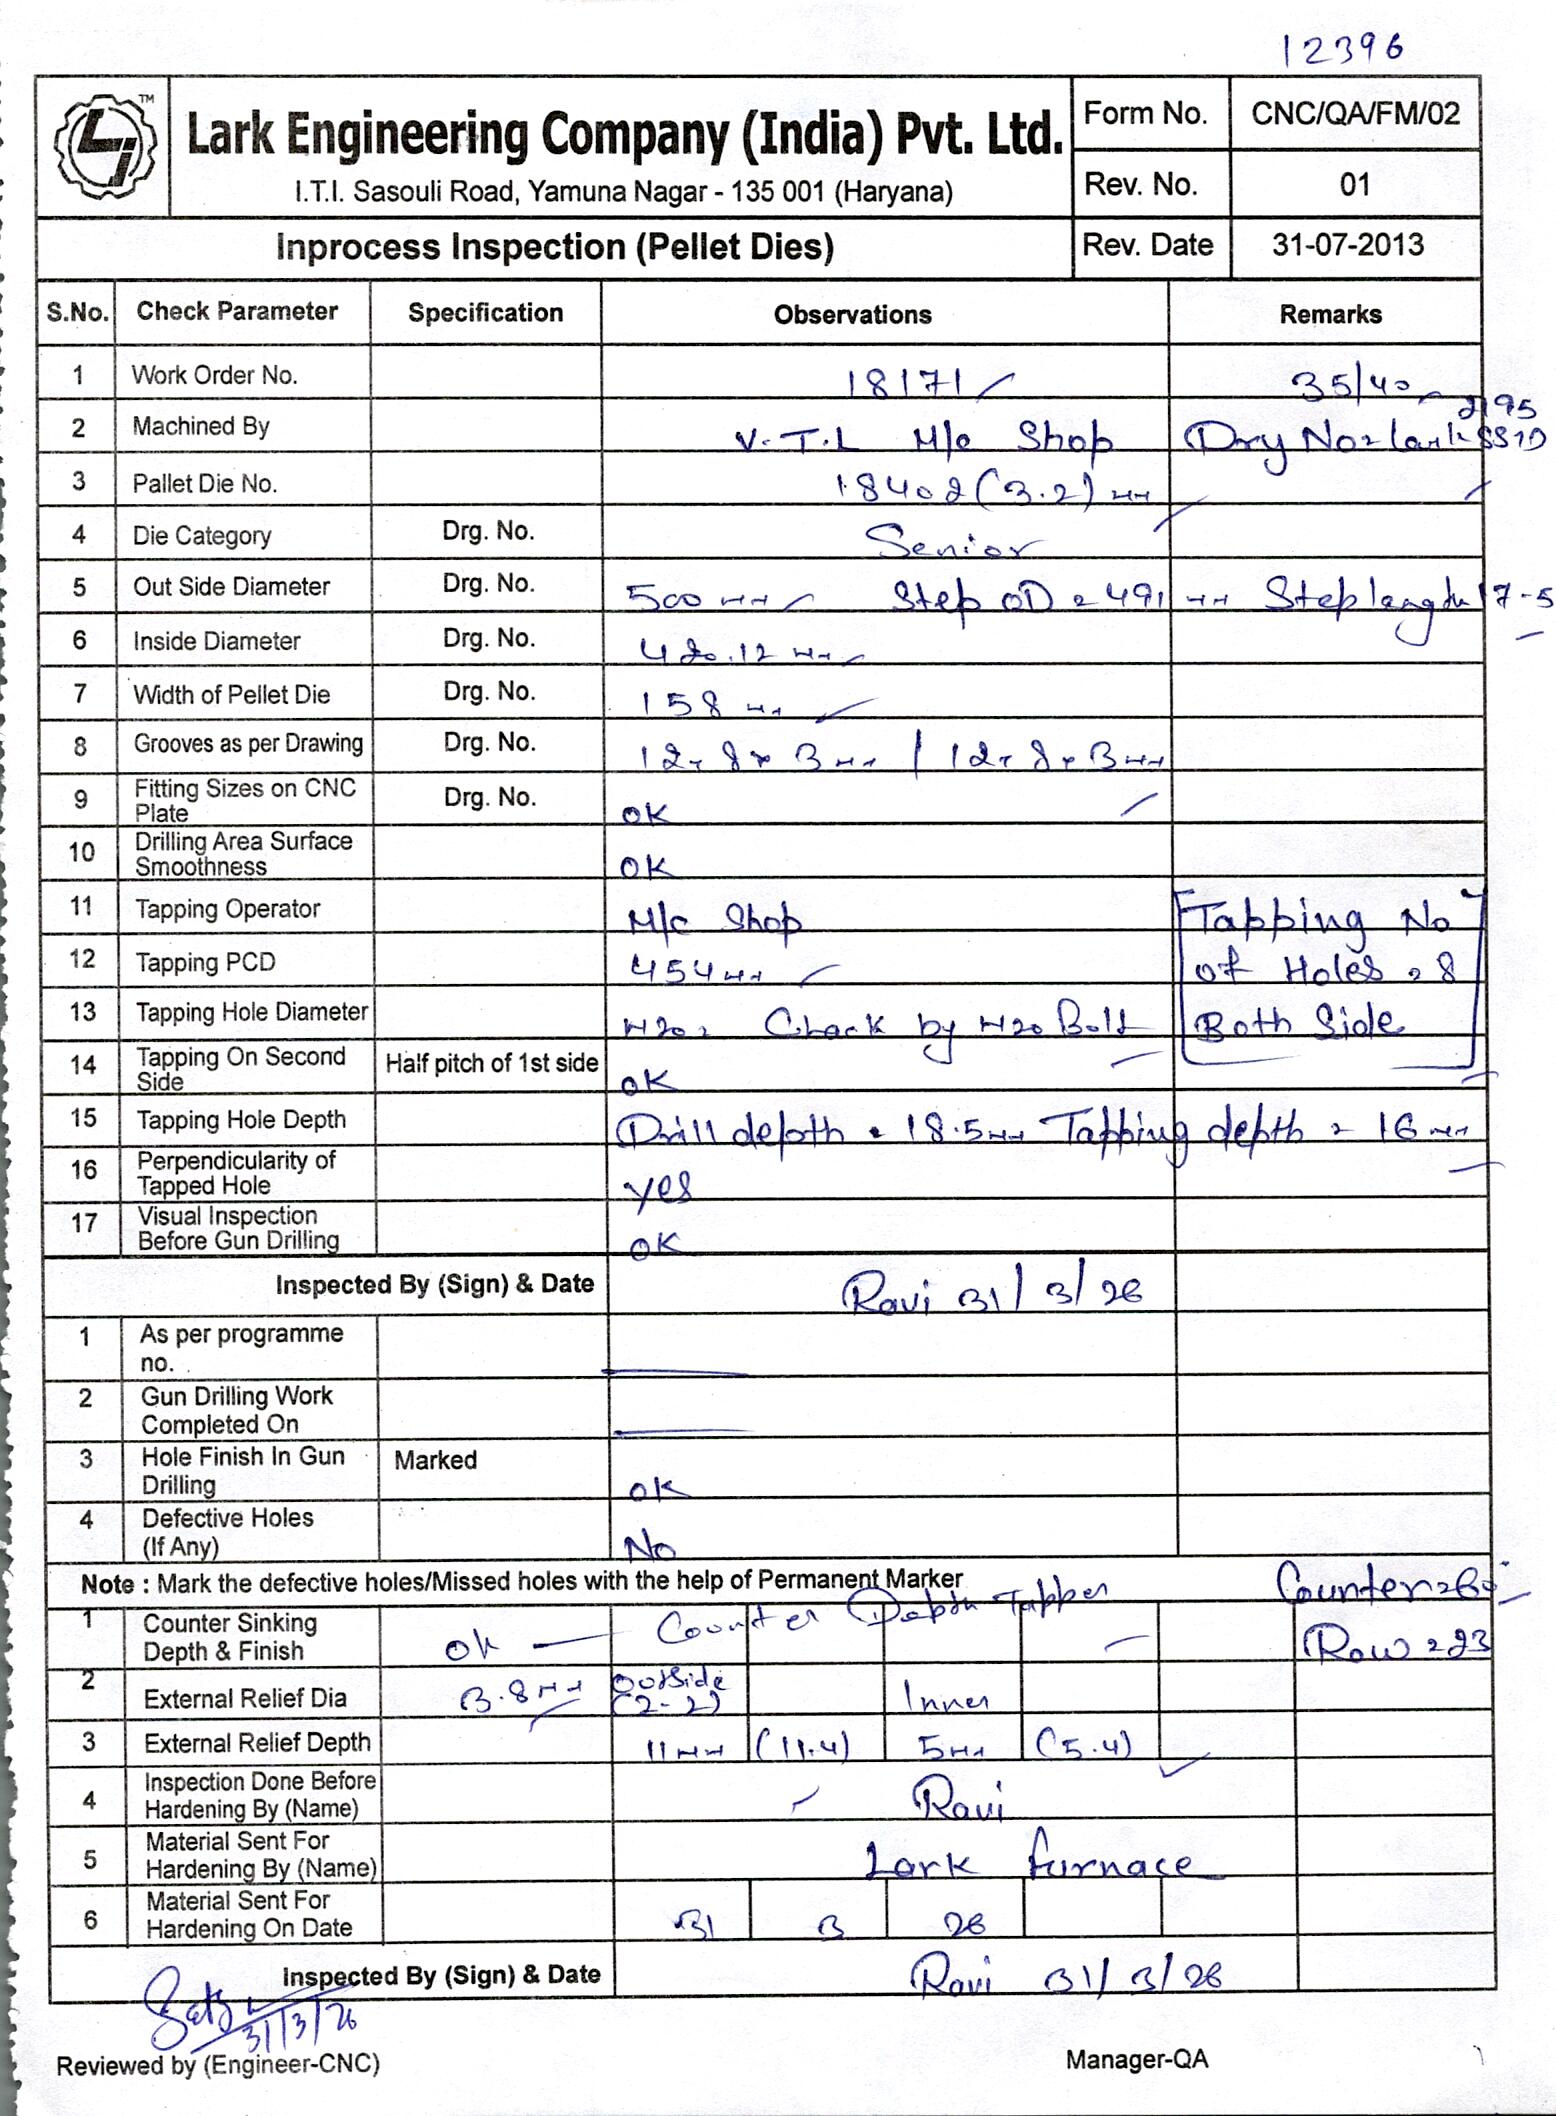 12396
TM
Lark Engineering Company (India) Pvt. Ltd.
I.T.I. Sasouli Road, Yamuna Nagar - 135 001 (Haryana)
Form No. CNC/QA/FM/02
Rev. No. 01
Inprocess Inspection (Pellet Dies) Rev. Date 31-07-2013
S.No. Check Parameter Specification Observations Remarks
1 Work Order No. 18171 35/40
2 Machined By V.T.L M/c Shop
3 Pallet Die No. 18402 (3.2) mm
4 Die Category Drg. No. Senior
5 Out Side Diameter Drg. No. 500 mm Step OD = 491 mm Step length 17-5
6 Inside Diameter Drg. No. 420.12 mm
7 Width of Pellet Die Drg. No. 158 mm
8 Grooves as per Drawing Drg. No. 12x8x3mm / 12x8x3mm
9 Fitting Sizes on CNC Plate Drg. No. OK
10 Drilling Area Surface Smoothness OK
11 Tapping Operator M/c Shop Tapping No
12 Tapping PCD 454mm of Holes = 8
13 Tapping Hole Diameter M20 = Check by M20 Bolt Both Side
14 Tapping On Second Side Half pitch of 1st side OK
15 Tapping Hole Depth Drill depth = 18.5mm Tapping depth = 16mm
16 Perpendicularity of Tapped Hole yes
17 Visual Inspection Before Gun Drilling OK
Inspected By (Sign) & Date Ravi 31/3/26
1 As per programme no.
2 Gun Drilling Work Completed On
3 Hole Finish In Gun Drilling Marked OK
4 Defective Holes (If Any) No
Note : Mark the defective holes/Missed holes with the help of Permanent Marker
1 Counter Sinking Depth & Finish ok Counter Depth Tapper Row = 23
2 External Relief Dia 3.8mm Outside (2-2) Inner
3 External Relief Depth 11mm (11.4) 5mm (5.4)
4 Inspection Done Before Hardening By (Name) Ravi
5 Material Sent For Hardening By (Name) Lark furnace
6 Material Sent For Hardening On Date 31 3 26
Inspected By (Sign) & Date Ravi 31/3/26
31/3/26
Reviewed by (Engineer-CNC) Manager-QA